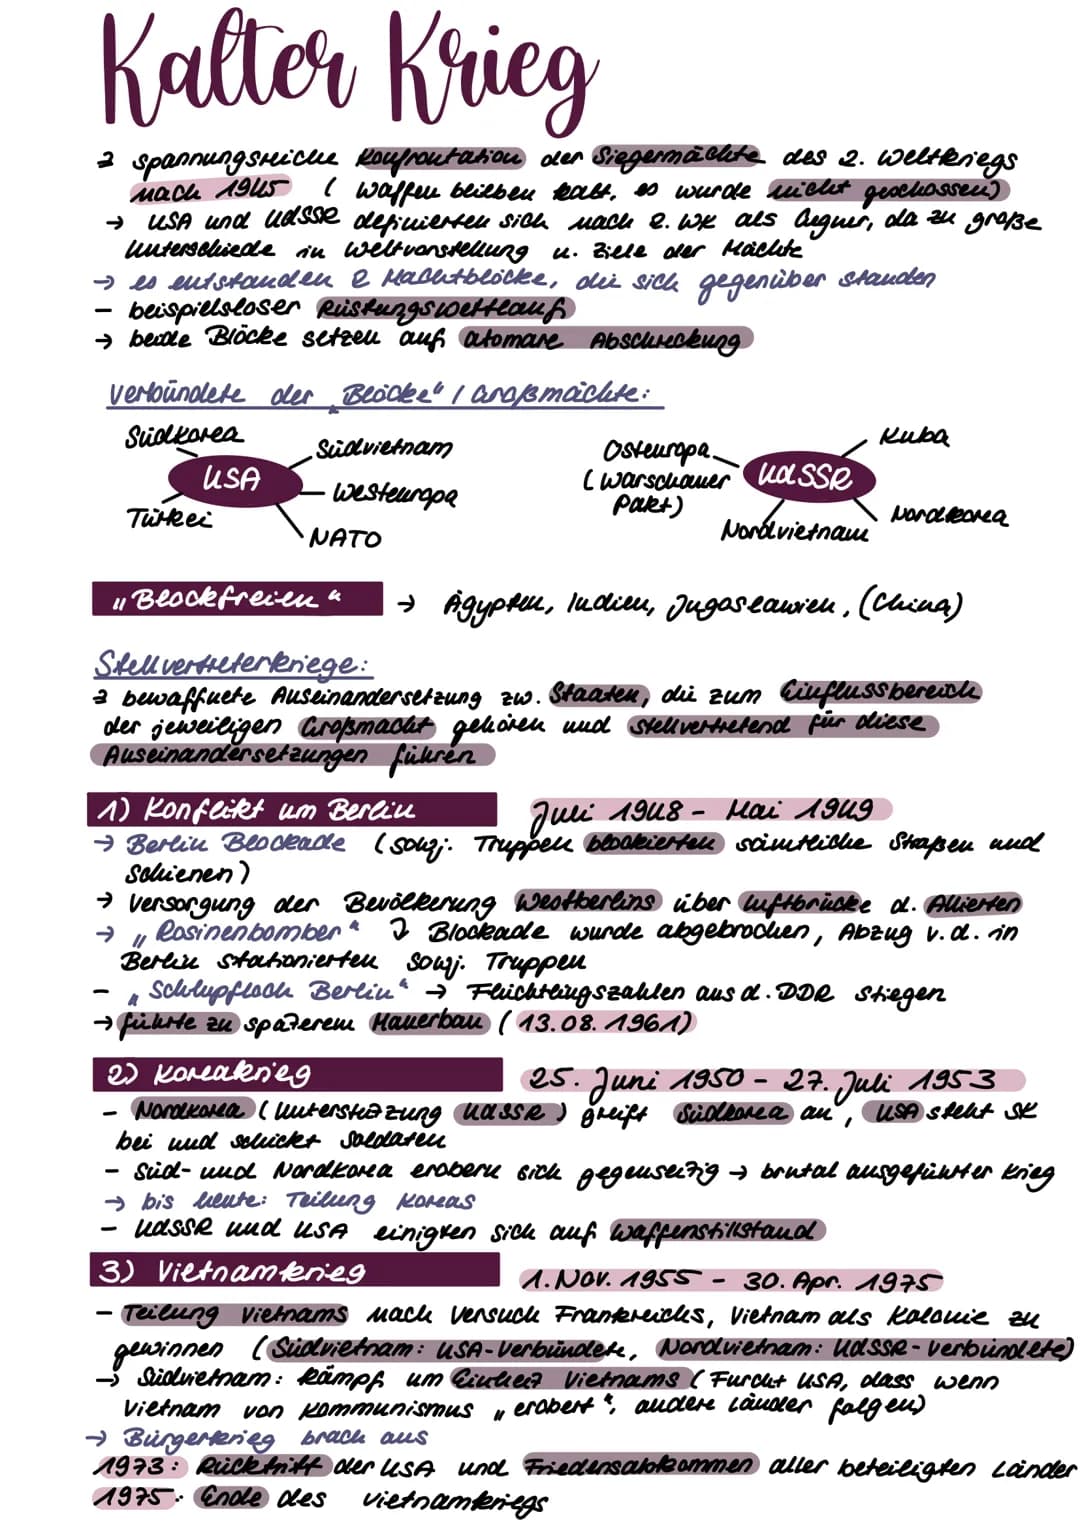 Kalter Krieg
→ spannungsreiche Konfrontation der Siegermächte des 2. Weltkriegs
nach 1945 ( Waffen blieben kalt, es wurde nicht geschossen)
→ USA und UdSSR definierten sich nach 2. WK als Gegner, da zu große
Unterschiede in Weltvorstellung u. Ziele der Mächte
→ es entstanden 2 Machtblöcke, die sich gegenüber standen
- beispielsloser Rüstungswettlauf
→ beide Blöcke setzen auf atomare Abschreckung
Verbündete der „Blöcke“ / Großmächte:
Südkorea
Südvietnam
USA
Westeuropa
Türkei
NATO
Osteuropa
(Warschauer
Pakt)
UdSSR
Kuba
Nordkorea
Nordvietnam
„Blockfreien“ → Ägypten, Indien, Jugoslawien, (China)
Stellvertreterkriege:
→ bewaffnete Auseinandersetzung zw. Staaten, die zum Einflussbereich
der jeweiligen Großmacht gehören und stellvertretend für diese
Auseinandersetzungen führen
1) Konflikt um Berlin Juli 1948 - Mai 1949
→ Berlin Blockade (sowj. Truppen blockierten sämtliche Straßen und
Schienen)
→ Versorgung der Bevölkerung Westberlins über Luftbrücke d. Alliierten
→ „Rosinenbomber“ ↓ Blockade wurde abgebrochen, Abzug v. d. in
Berlin stationierten sowj. Truppen
- „Schlupfloch Berlin“ → Flüchtlingszahlen aus d. DDR stiegen
→ führte zu späterem Mauerbau (13.08.1961)
2) Koreakrieg 25. Juni 1950 - 27. Juli 1953
- Nordkorea (Unterstützung UdSSR) greift Südkorea an, USA steht SK
bei und schickt Soldaten
- Süd- und Nordkorea erobern sich gegenseitig → brutal ausgeführter Krieg
→ bis heute: Teilung Koreas
- UdSSR und USA einigten sich auf Waffenstillstand
3) Vietnamkrieg 1. Nov. 1955 - 30. Apr. 1975
- Teilung Vietnams nach Versuch Frankreichs, Vietnam als Kolonie zu
gewinnen (Südvietnam: USA-Verbündete, Nordvietnam: UdSSR-Verbündete)
→ Südvietnam: Kampf um Einheit Vietnams (Furcht USA, dass wenn
Vietnam von Kommunismus „erobert“, andere Länder folgen)
→ Bürgerkrieg brach aus
1973: Rücktritt der USA und Friedensabkommen aller beteiligten Länder
1975: Ende des Vietnamkriegs